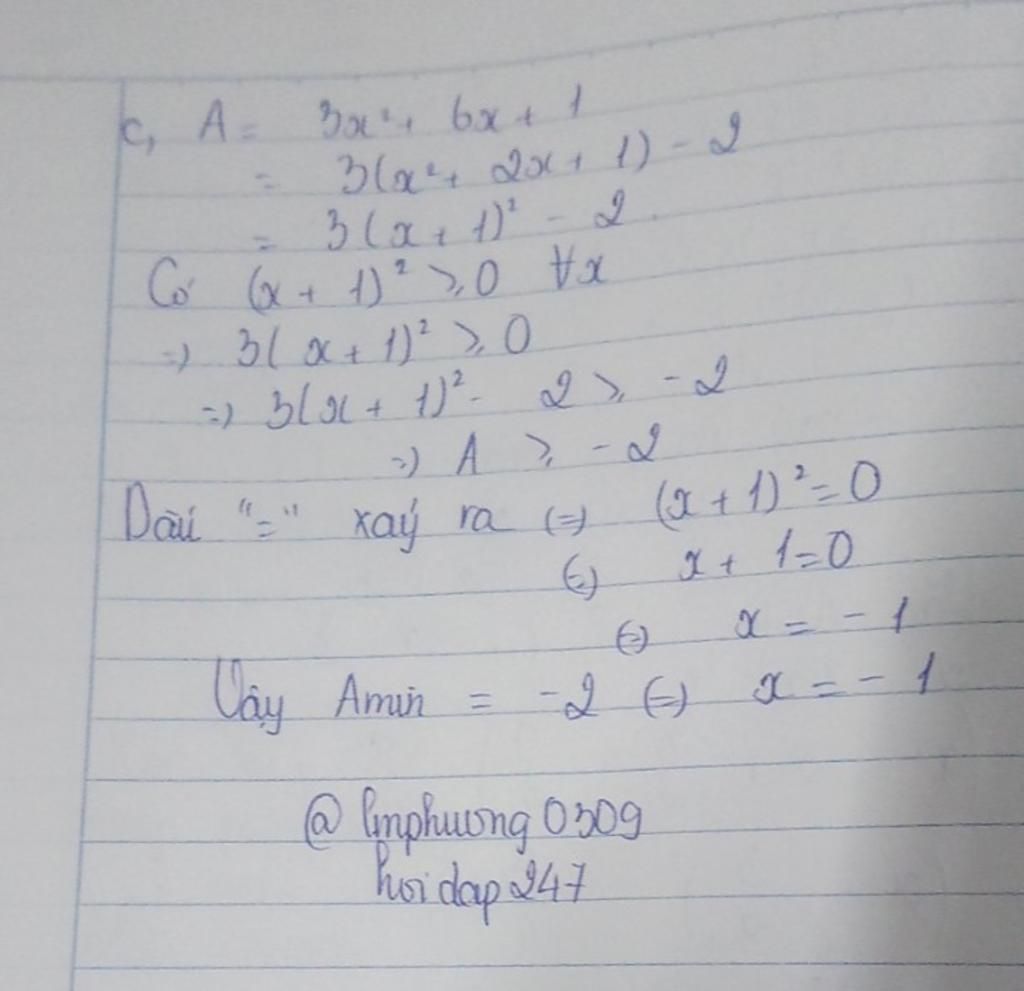 c, A = 3x² + 6x + 1
= 3(x² + 2x + 1) - 2
= 3(x + 1)² - 2
Có (x + 1)² ≥ 0 ∀x
=> 3(x + 1)² ≥ 0
=> 3(x + 1)² - 2 ≥ -2
=> A ≥ -2
Dấu "=" xảy ra <=> (x + 1)² = 0
<=> x + 1 = 0
<=> x = -1
Vậy Amin = -2 <=> x = -1
@lmphuong0309
hoidap247